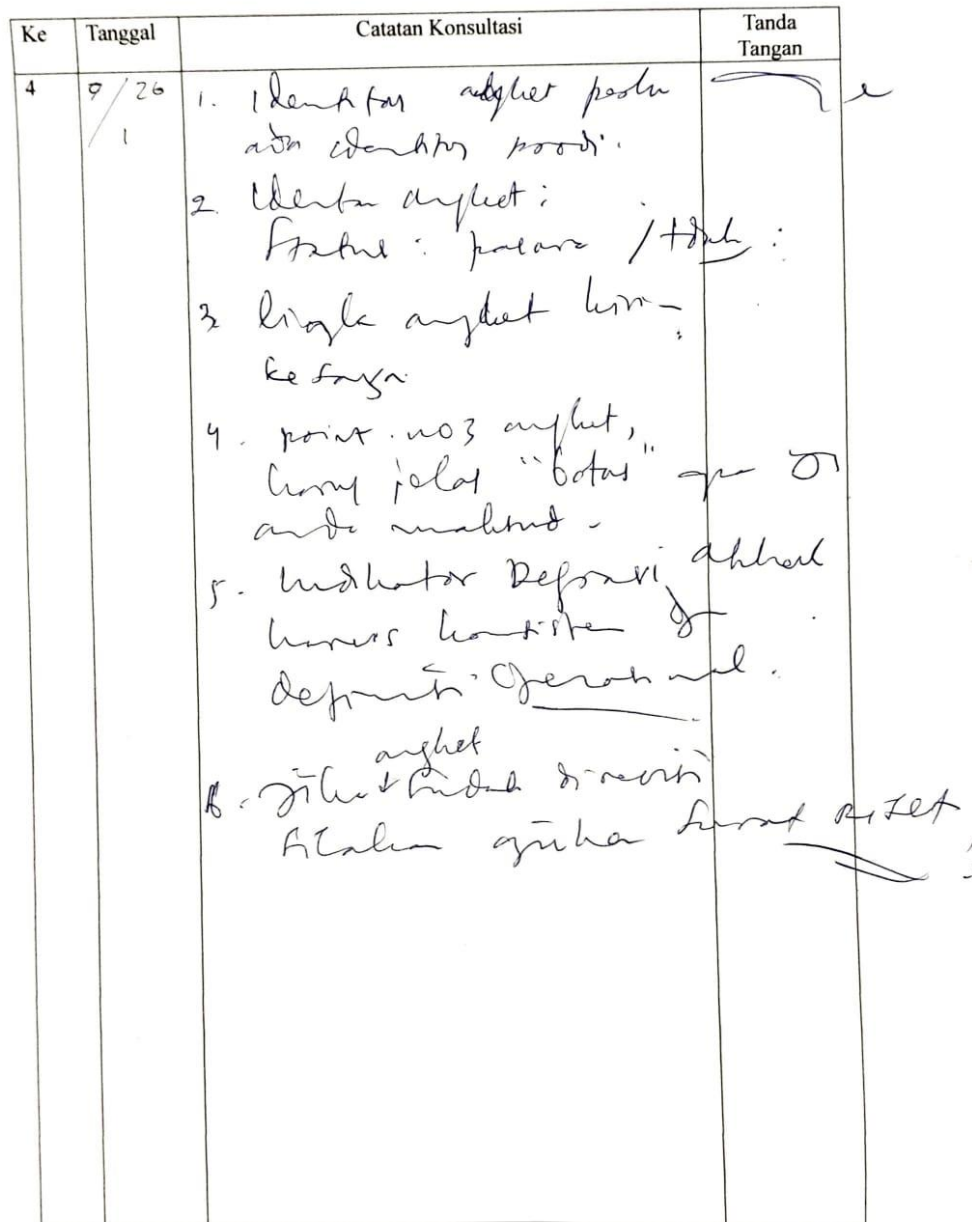 Ke Tanggal Catatan Konsultasi Tanda
Tangan
4 9/1 26
1. Identitas angket perlu
ada identitas prodi.
2. angket:
Status: pacaran / tdak:
3. angket kirim
ke saya.
4. point no 3 angket,
harus jelas "batas" apa yg
anda maksud.
5. Indikator Degradasi akhlak
harus konsisten dg
definisi Operasional.
6. Jika angket sudah direvisi
silakan ajukan surat riset